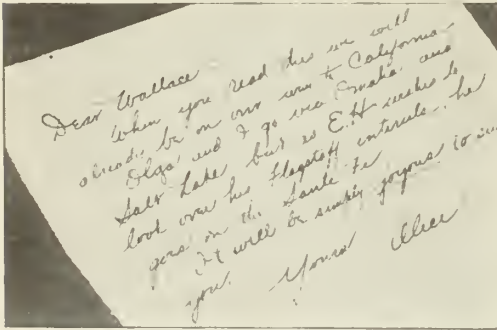 Dear Wallace
When you read this we will
already be on our way to California-
Olga and I go via Omaha and
Salt Lake but as E.H wishes to
look over his Flagstaff interests, he
goes on the Santa Fe
It will be simply joyous to see
you. Yours Alice